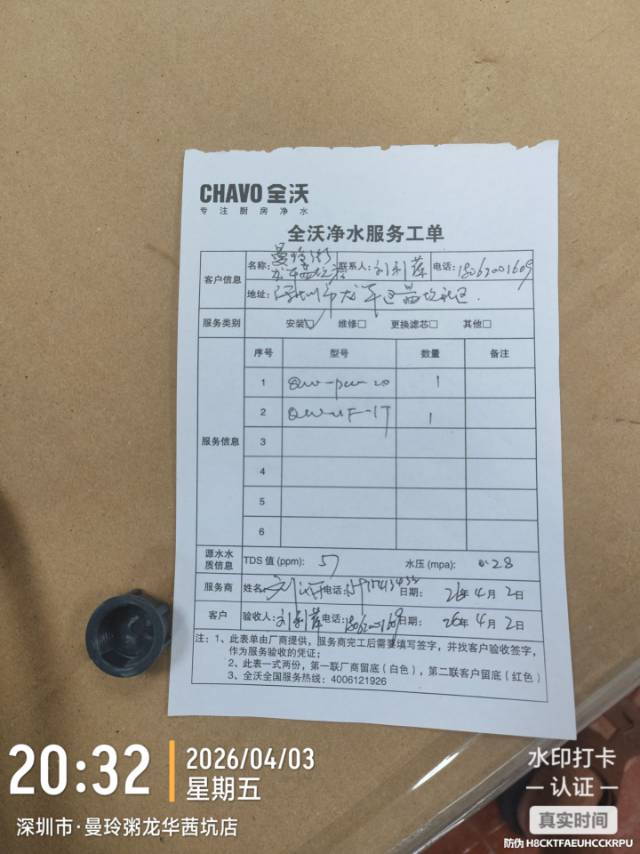 CHAVO 全沃
专注厨房净水
全沃净水服务工单
客户信息
名称：曼玲粥龙华茜坑店 联系人：刘利萍 电话：18062001609
地址：深圳市龙华区茜坑社区.
服务类别 安装☑ 维修□ 更换滤芯□ 其他□
服务信息
序号 型号 数量 备注
1 1
2 QW-UF-1T 1
3
4
5
6
源水水质信息 TDS值 (ppm)： 57 水压 (mpa)： 0.28
服务商 姓名： 电话： 日期： 26年4月2日
客户 验收人：刘利萍 电话：18062001609 日期： 26年4月2日
注：1、此表单由厂商提供，服务商完工后需要填写签字，并找客户验收签字，
作为服务验收的凭证；
2、此表一式两份，第一联厂商留底（白色），第二联客户留底（红色）
3、全沃全国服务热线：4006121926
20:32
2026/04/03
星期五
深圳市·曼玲粥龙华茜坑店
水印打卡
认证
真实时间
防伪 H8CKTFAEUHCCKRPU